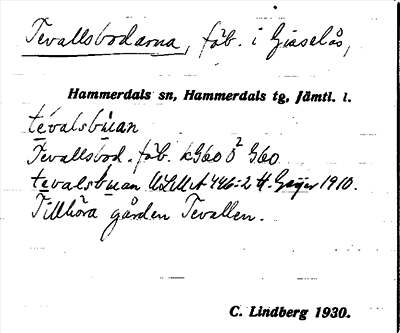 Tevallsbodarna, fäb. i Gåxelås,
Hammerdals sn, Hammerdals tg, Jämtl. l.
tevalsbuan
Tevallsbod. fäb. kG60 Ö² G60
tevalsbuan ULMA 446:2 H. Geijer 1910.
Tillhöra gården Tevallen.
C. Lindberg 1930.